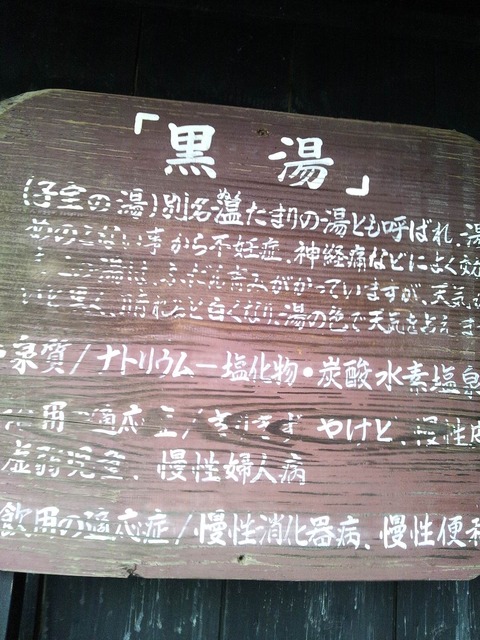 「黒 湯」
(子宝の湯)別名溫たまりの湯とも呼ばれ、湯
事から不妊症、神経痛などによく効
ふだん青みがかっていますが、天気
晴れると白くなり、湯の色で天気を占えま
・泉質/ナトリウムー塩化物・炭酸水素塩泉
浴用の適応症/きりきず やけど、慢性皮
虚弱児童、慢性婦人病
飲用の適応症/慢性消化器病、慢性便秘